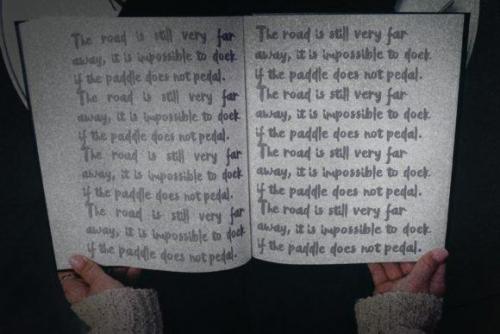 The road is still very far
away, it is impossible to dock
if the paddle does not pedal.
The road is still very far
away, it is impossible to dock
if the paddle does not pedal.
The road is still very far
away, it is impossible to dock
if the paddle does not pedal.
The road is still very far
away, it is impossible to dock
if the paddle does not pedal.
The road is still very far
away, it is impossible to dock
if the paddle does not pedal.
The road is still very far
away, it is impossible to dock
if the paddle does not pedal.
The road is still very far
away, it is impossible to dock
if the paddle does not pedal.
The road is still very far
away, it is impossible to dock
if the paddle does not pedal.